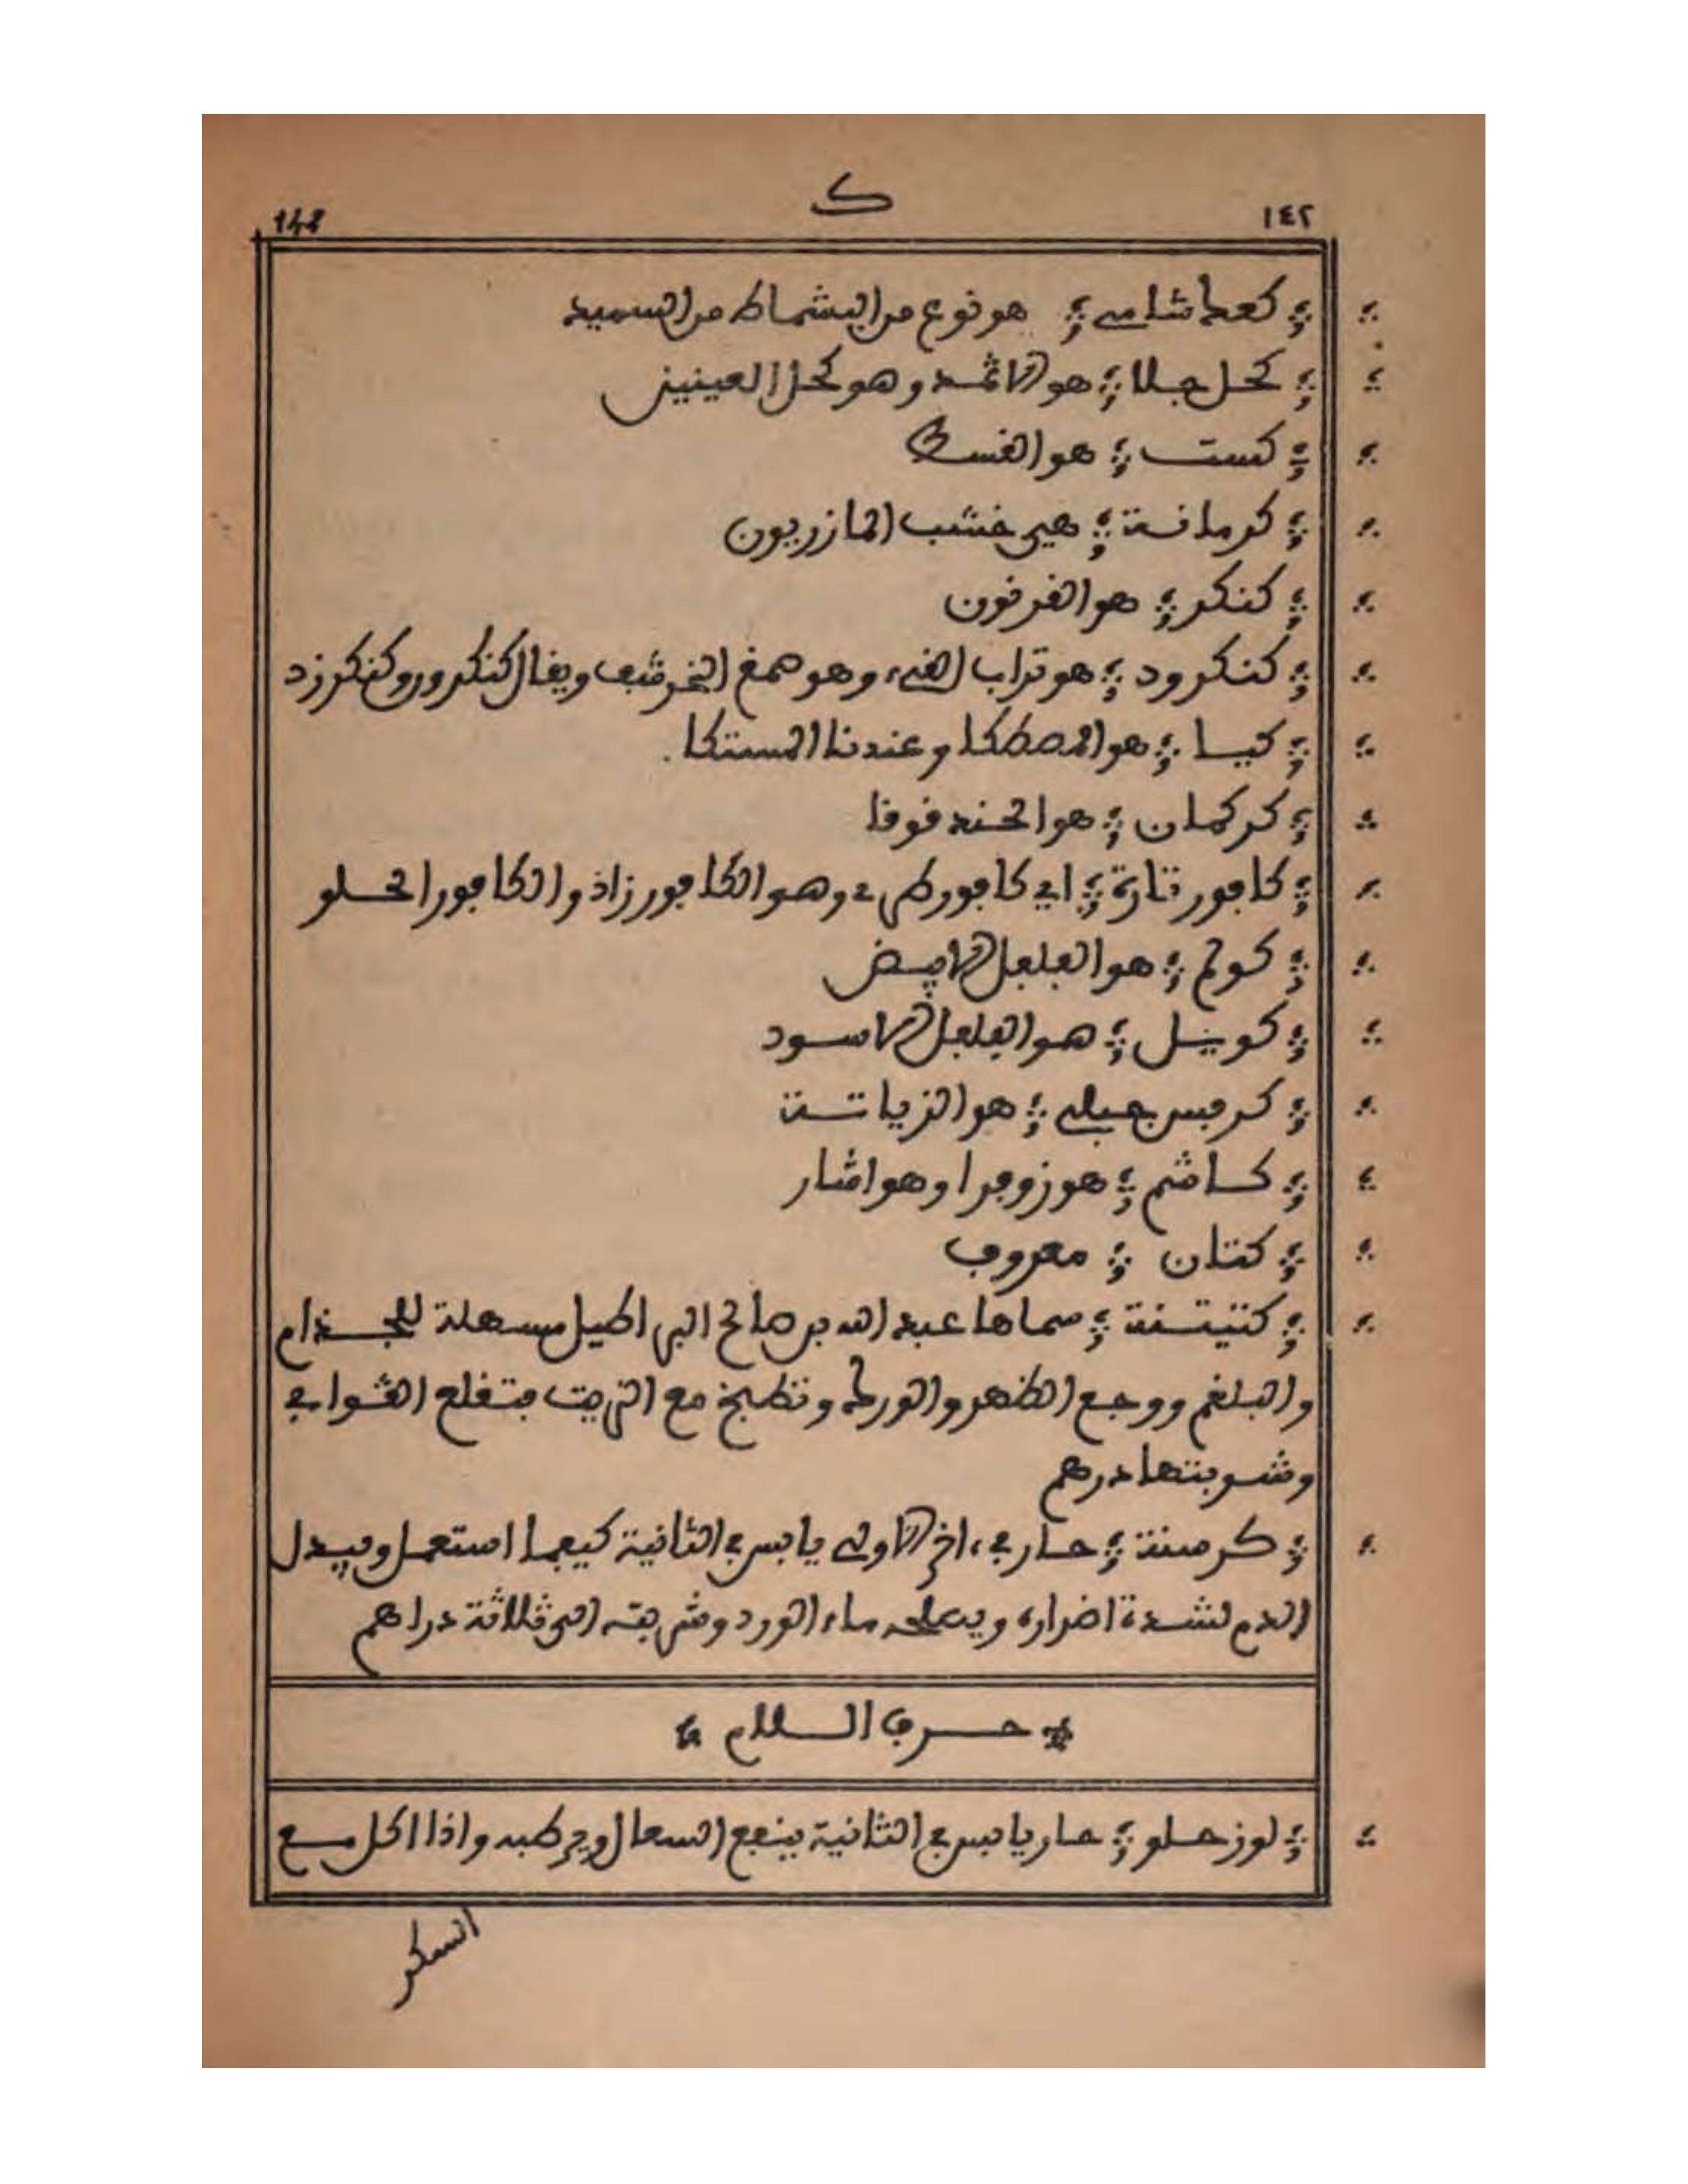 ١٤٢ ك 142
كعك شامي هو نوع من البشماط من السميد
كحل جلا هو الاثمد وهو كحل العينين
كست هو القسط
كرمدانة هي خشب المازريون
كنكر هو القرنون
كنكرود هو تراب القيء وهو صمغ الخرشف ويقال كنكرور وكنكرزد
كيا هو المصطكا وعندنا المستكا
كركمان هو الحندقوقا
كافور وهو الكافور زاذ والكافور الحلو
هو الفلفل الابيض
كوبيل هو الفلفل الاسود
كرفس جبلي هو الزياتة
كاشم هو زوفرا وهو
كتان معروف
سماها عبد الله بن صالح مسهلة للجذام
والبلغم ووجع الظهر والورك وتطبخ مع الزيت فتقلع القوابي
وشربتها درهم
كرسنة حار في ءاخر الاولى يابس في الثانية كيفما استعمل ويبدل
الدم لشدة اضراره ويصلحه ماء الورد وشربته الى ثلاثة دراهم
حرف اللام
لوز حلو حار يابس في الثانية ينفع السعال واذا اكل مع
السكر